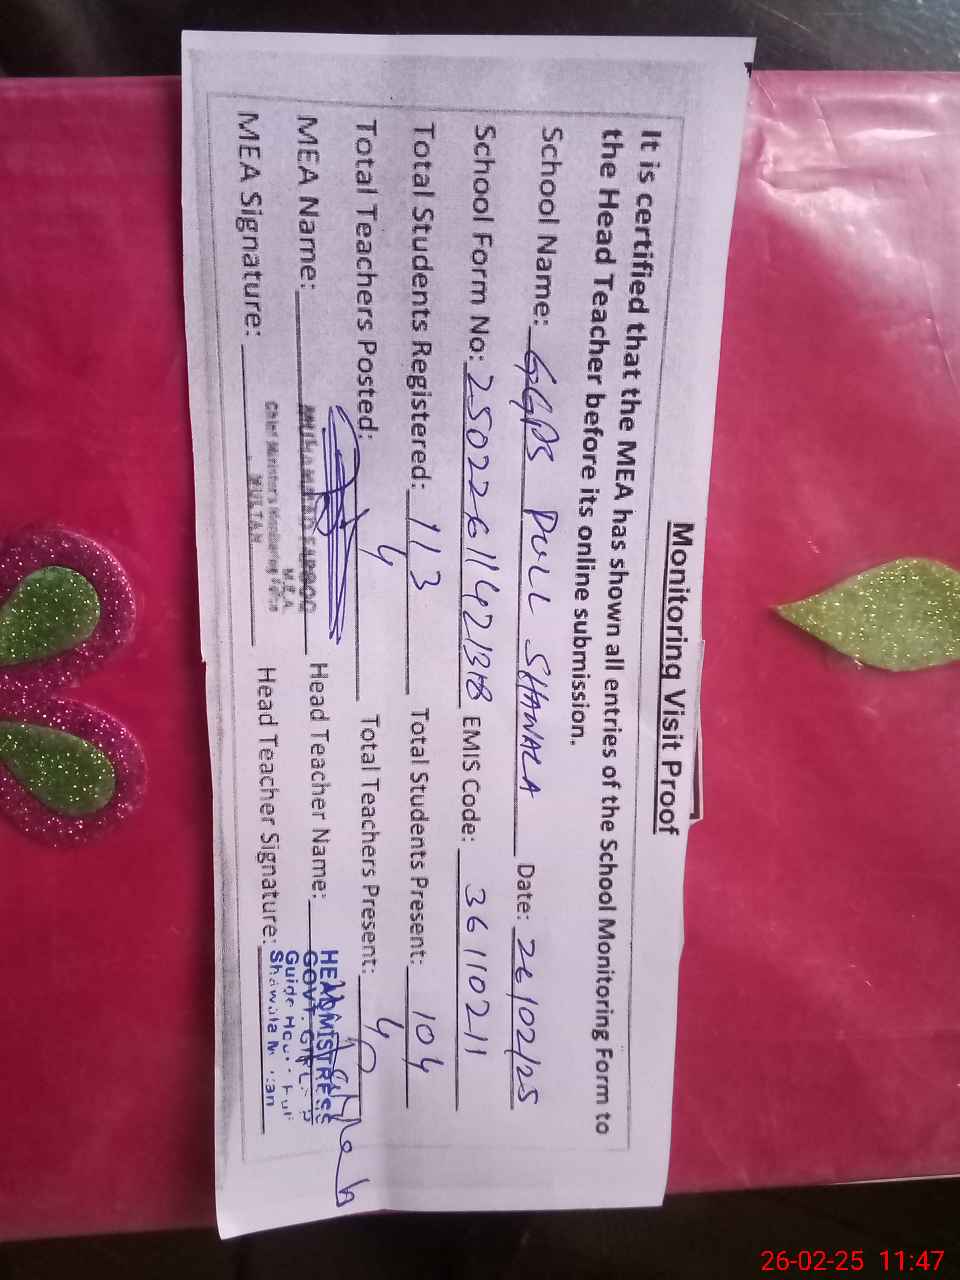 Monitoring Visit Proof
It is certified that the MEA has shown all entries of the School Monitoring Form to
the Head Teacher before its online submission.
School Name: GGPS PULL SHAWALA Date: 26/02/25
School Form No: EMIS Code: 36110211
Total Students Registered: 113 Total Students Present: 104
Total Teachers Posted: 4 Total Teachers Present: 4
MEA Name: MUHAMMAD FAROOQ Head Teacher Name:
M.E.A
MEA Signature: Head Teacher Signature:
Chief Minister's Monitoring Force
MULTAN
HEADMISTRESS
GOVT. GIRLS
Guide
Shawala
26-02-25 11:47